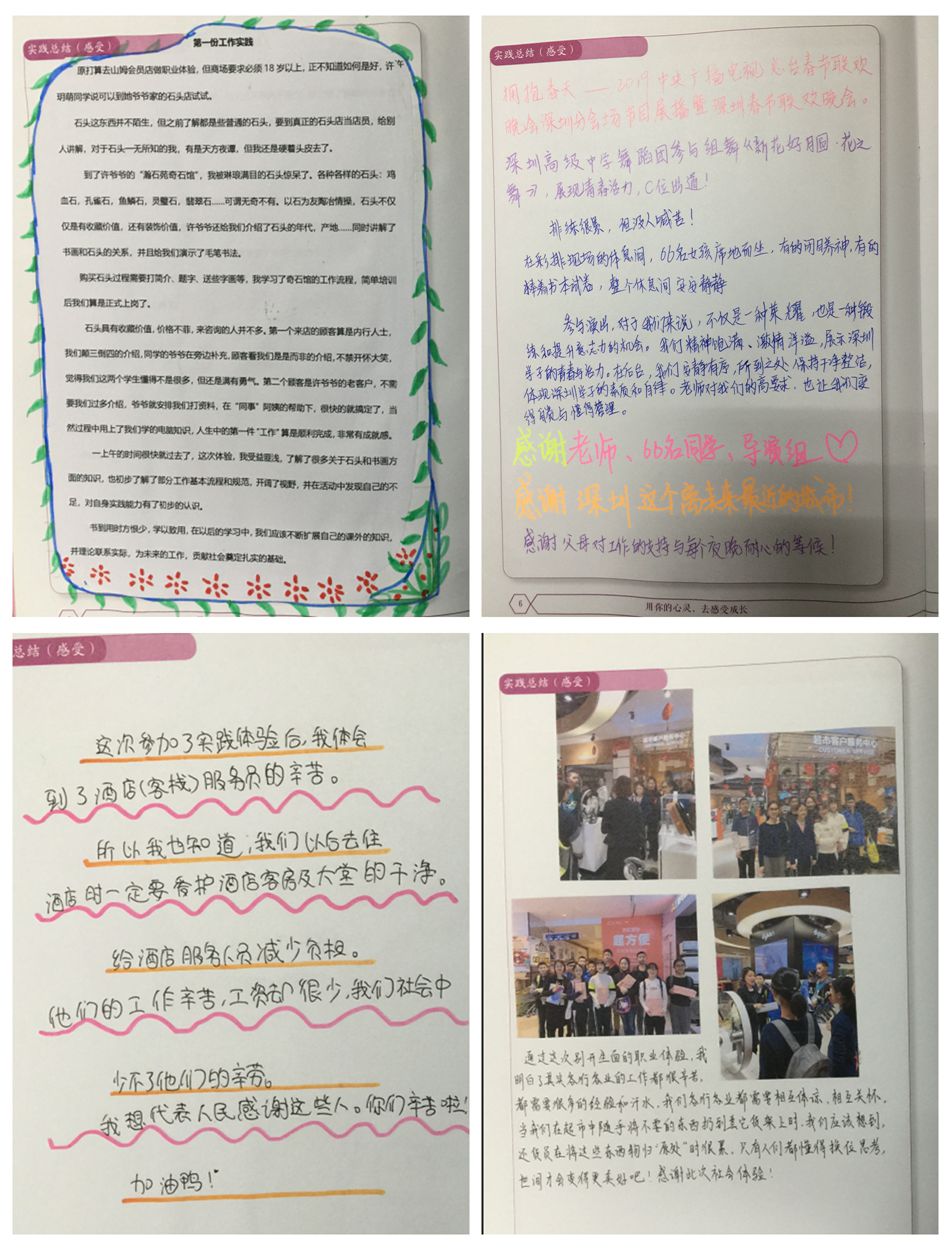 实践总结（感受）
第一份工作实践
原打算去山姆会员店做职业体验，但商场要求必须 18 岁以上，正不知道如何是好，许
玥萌同学说可以到她爷爷家的石头店试试。
石头这东西并不陌生，但之前了解都是些普通的石头，要到真正的石头店当店员，给别
人讲解，对于石头一无所知的我，有是天方夜谭，但我还是硬着头皮去了。
到了许爷爷的“瀚石苑奇石馆”，我被琳琅满目的石头惊呆了。各种各样的石头：鸡
血石，孔雀石，鱼鳞石，灵璧石，翡翠石......可谓无奇不有。以石为友陶冶情操，石头不仅
仅是有收藏价值，还有装饰价值，许爷爷还给我们介绍了石头的年代，产地......同时讲解了
书画和石头的关系，并且给我们演示了毛笔书法。
购买石头过程需要打简介、题字、送些字画等，我学习了奇石馆的工作流程，简单培训
后我们算是正式上岗了。
石头具有收藏价值，价格不菲，来咨询的人并不多。第一个来店的顾客算是内行人士，
我们颠三倒四的介绍，同学的爷爷在旁边补充，顾客看我们是是而非的介绍，不禁开怀大笑，
觉得我们这两个学生懂得不是很多，但还是满有勇气。第二个顾客是许爷爷的老客户，不需
要我们过多介绍，爷爷就安排我们打资料，在“同事”阿姨的帮助下，很快的就搞定了，当
然过程中用上了我们学的电脑知识，人生中的第一件“工作”算是顺利完成，非常有成就感。
一上午的时间很快就过去了，这次体验，我受益匪浅，了解了很多关于石头和书画方
面的知识，也初步了解了部分工作基本流程和规范，开阔了视野，并在活动中发现自己的不
足，对自身实践能力有了初步的认识。
书到用时方恨少，学以致用，在以后的学习中，我们应该不断扩展自己的课外的知识，
并理论联系实际，为未来的工作，贡献社会奠定扎实的基础。
实践总结（感受）
拥抱春天——2019中央广播电视总台春节联欢
晚会深圳分会场节目展播暨深圳春节联欢晚会。
深圳高级中学舞蹈团参与组舞《新花好月圆·花之
舞》，展现青春活力，C位出道！
排练很累，但没人喊苦！
在彩排现场的休息间，66名女孩席地而坐，有的闭目养神，有的
捧着书本试卷，整个休息间安安静静
参与演出，对于我们来说，不仅是一种荣耀，也是一种锻
练和提升意志力的机会。我们精神饱满、激情洋溢，展示深圳
学子的青春与活力。在后台，我们安静有序，所到之处，保持干净整洁，
体现深圳学子的素质和自律。老师对我们的高要求，也让我们变
得自觉与懂得管理。
感谢老师、66名同学、导演组♡
感谢深圳这个离未来最近的城市！
感谢父母对工作的支持与每个夜晚耐心的等候！
6
用你的心灵，去感受成长
总结（感受）
这次参加了实践体验后，我体会
到了酒店(客栈)服务员的辛苦。
所以我也知道，我们以后去住
酒店时一定要爱护酒店客房及大堂的干净。
给酒店服务人员减少负担。
他们的工作辛苦，工资却很少，我们社会中
少不了他们的辛劳。
我想代表人民感谢这些人。你们辛苦啦！
加油鸭！
实践总结（感受）
超市客户服务中心
CUSTOMER SERVICE
超方便
通过这次别开生面的职业体验，我
明白了其实各行各业的工作都很辛苦，
都需要很多的经验和汗水，我们各行各业都需要相互体谅、相互关怀。
当我们在超市中随手将不要的东西扔到其它货架上时，我们应该想到，
还货员在将这些东西物归“原处”时很累，只有人们都懂得换位思考，
世间才会变得更美好吧！感谢此次社会体验！